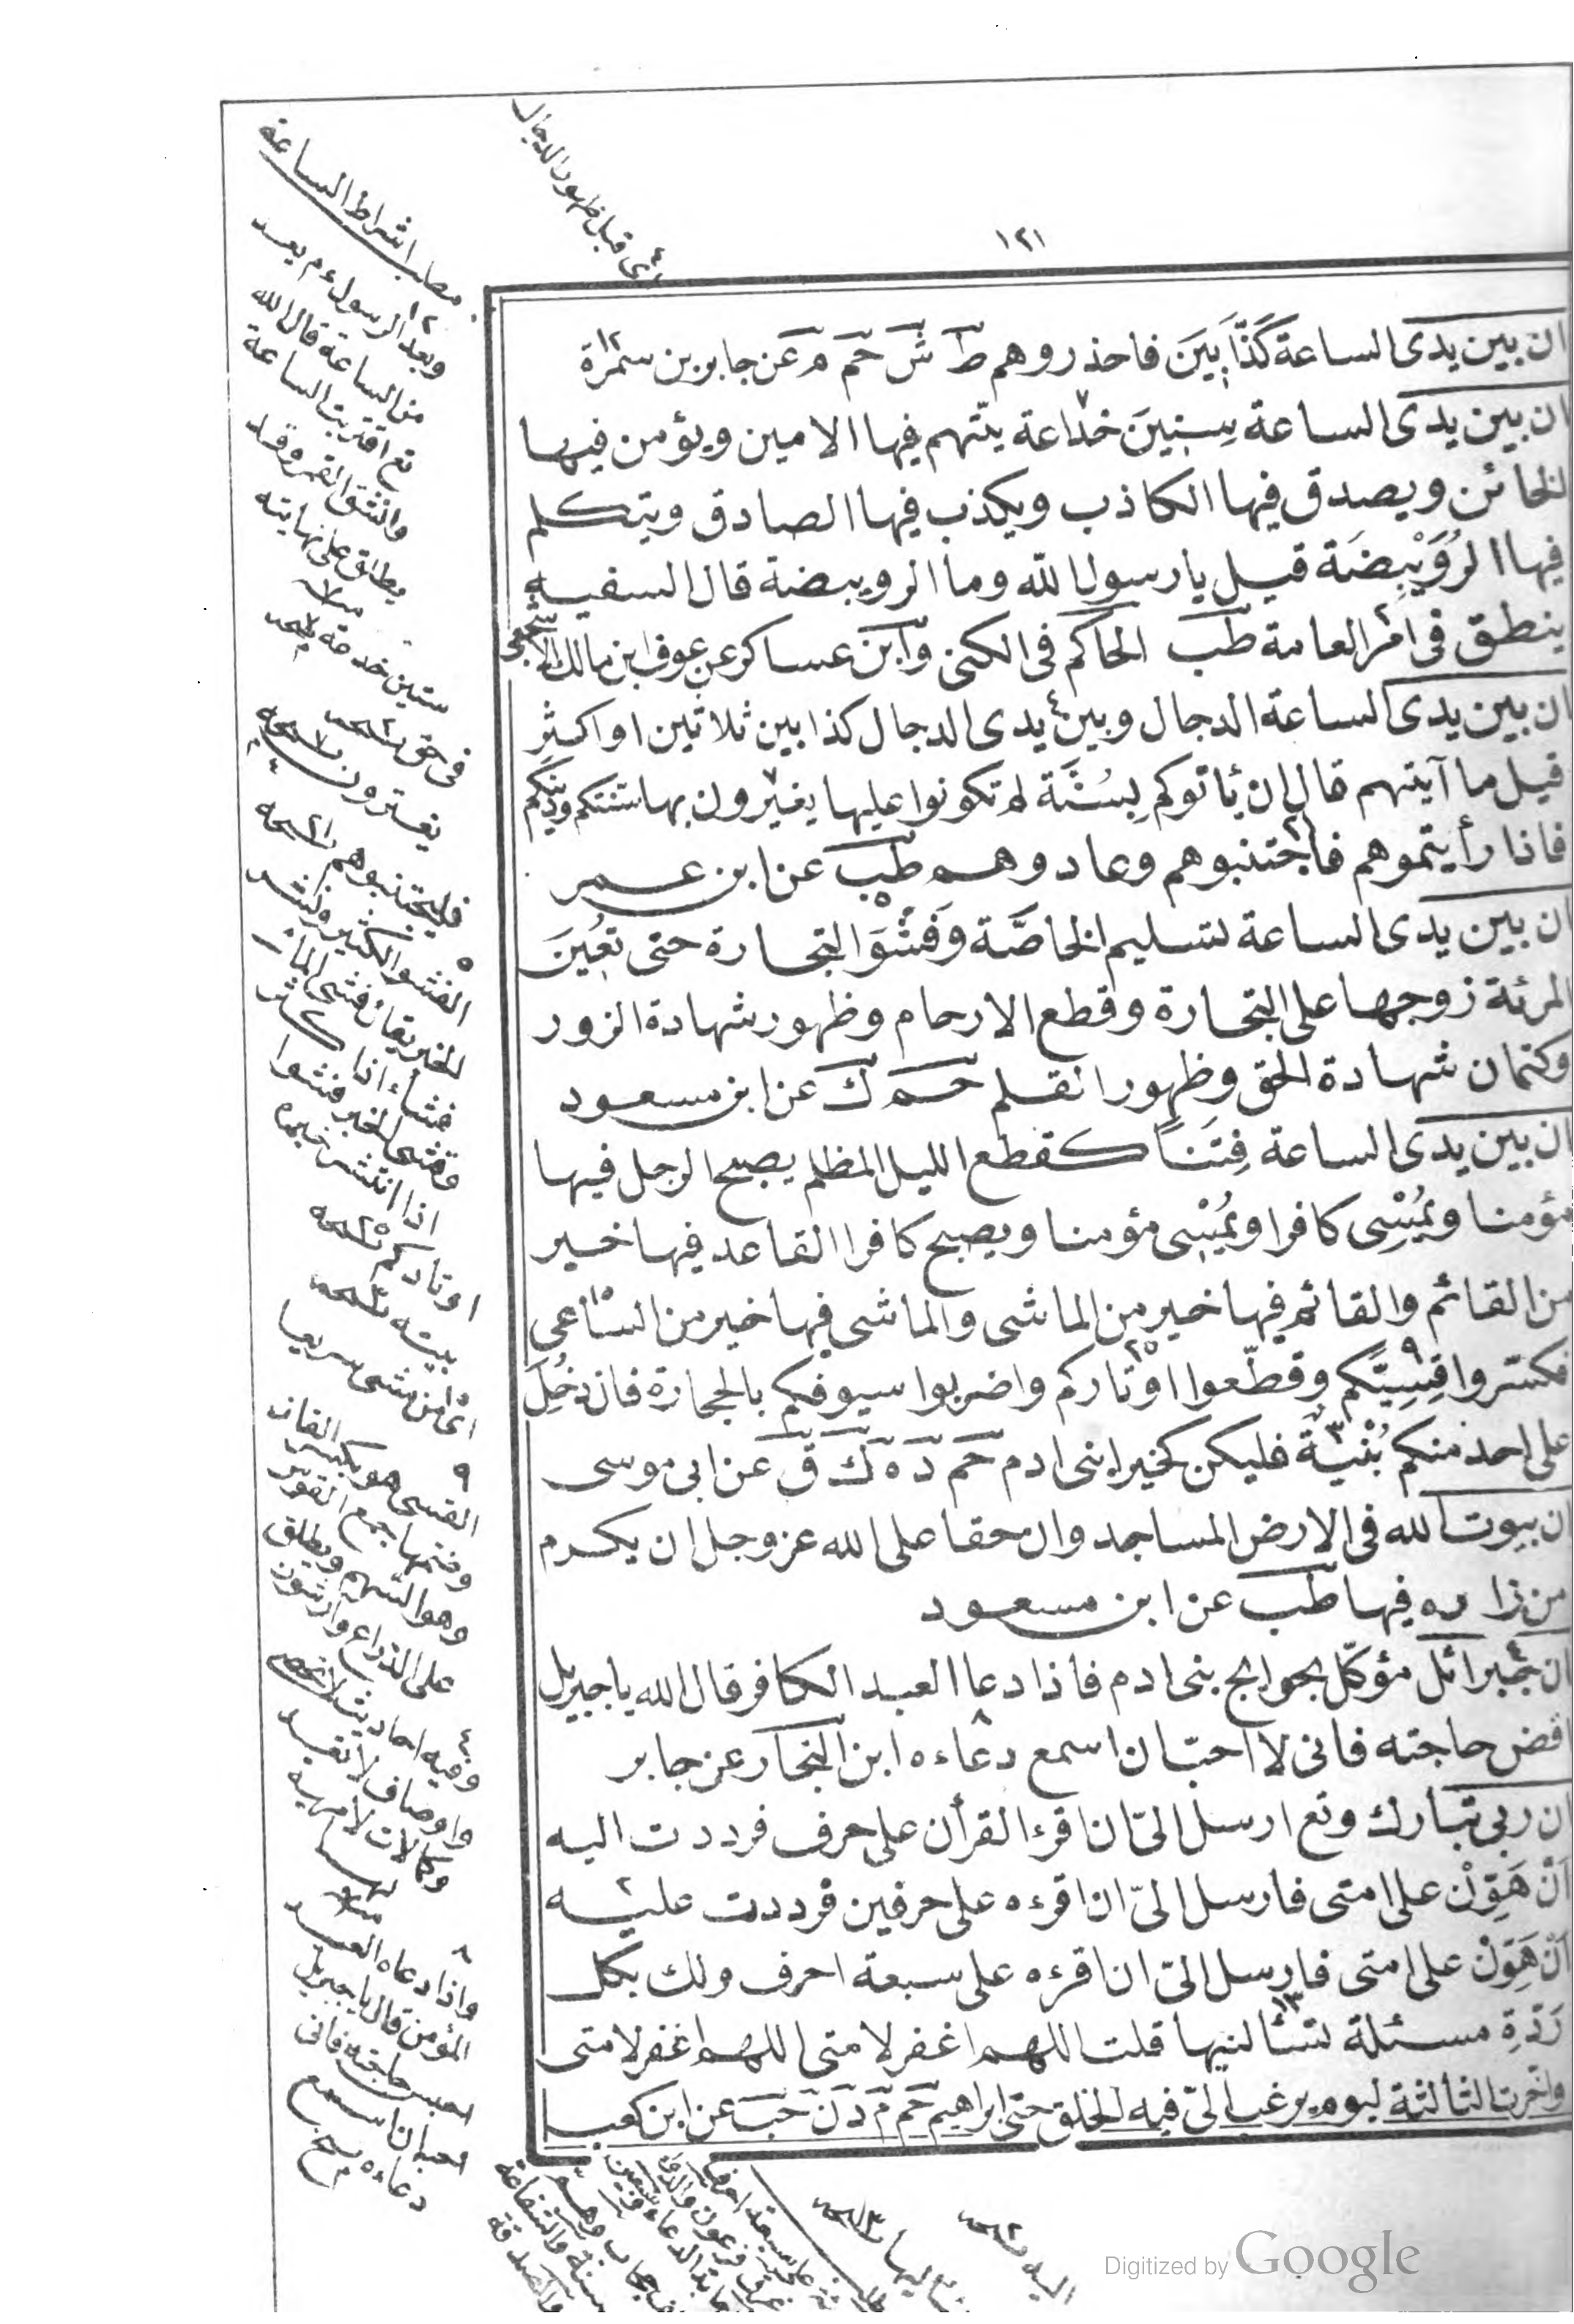 ١٢١
ان بين يدى الساعة كَذَّابِينَ فاحذروهم ط ش حم م عن جابر بن سمرة
ان بين يدى الساعة سِنِينَ خداعة يتّهم فيها الامين ويؤمن فيها
الخائن ويصدق فيها الكاذب ويكذب فيها الصادق ويتكلم
فيها الرُوَيْبِضَة قيل يا رسول الله وما الرويبضة قال السفيه
ينطق فى امر العامة طب الحاكم فى الكنى وابن عساكر عن عوف ابن مالك الاشجعى
ان بين يدى الساعة الدجال وبين يدى الدجال كذابين ثلاثين او اكثر
قيل ما آيتهم قال ان يأتوكم بِسُنَّة لم تكونوا عليها يغيّرون بها سنتكم ودينكم
فاذا رأيتموهم فاجتنبوهم وعادوهم طب عن ابن عمر
ان بين يدى الساعة لتسليم الخاصَّة وَفَشْوَ التجارة حتى تعُينَ
المرئة زوجها على التجارة وقطع الارحام وظهور شهادة الزور
وكتمان شهادة الحق وظهور القلم حم ك عن ابن مسعود
ان بين يدى الساعة فِتَنًا كقطع الليل المظلم يصبح الرجل فيها
مؤمنا ويُمْسِى كافرا ويُمْسِى مؤمنا ويصبح كافرا القاعد فيها خير
من القائم والقائم فيها خير من الماشى والماشى فيها خير من الساعى
فكسّروا قِسِيَّكم وقطّعوا اوتاركم واضربوا سيوفكم بالحجارة فان دُخِلَ
على احد منكم بُنْيَةً فليكن كخير ابنى ادم حم د ه ك ق عن ابى موسى
ان بيوت الله فى الارض المساجد وان حقا على الله عز وجل ان يكرم
من زاره فيها طب عن ابن مسعود
ان جبرائل مؤكّل بحوايج بنى ادم فاذا دعا العبد الكافر قال الله يا جبريل
اقض حاجته فانى لا احبّ ان اسمع دعاءه ابن النجار عن جابر
ان ربى تبارك وتع ارسل الىّ ان اقرء القرأن على حرف فرددت اليه
اَنْ هَوِّنْ على امتى فارسل الىّ ان اقرءه على حرفين فرددت عليه
اَنْ هَوِّنْ على امتى فارسل الىّ ان اقرءه على سبعة احرف ولك بكل
رَدَّةٍ مسئلة تسألنيها قلت اللهم اغفر لامتى اللهم اغفر لامتى
واخرت الثالثة ليوم يرغب الىّ فيه الخلق حتى ابراهيم حم م د ن حب عن ابن كعب
اى قبل ظهور الدجال
مطلب اشراط الساعة
وبعد الرسول ءم يعد
من الساعة قال الله
تع اقتربت الساعة
وانشق القمر وقد
يطلق على نهايته
فليجتنبوهم نسخه
الفشو الكثير
اذا انتشر خبره
اوتادكم نسخه
بيته نسخه
اى من مشى سريعا
القسى هو بكسر القاف
وضمها جمع القوس
وهو السهم ويطلق
على الذراع
وفيه احاديث لا تحصى
واوصاف لا تعد
وكمالات لا نهاية
لها
واذا دعاه العبد
المؤمن قال يا جبريل
احبس حاجته فانى
احب ان اسمع
دعاءه
Digitized by Google